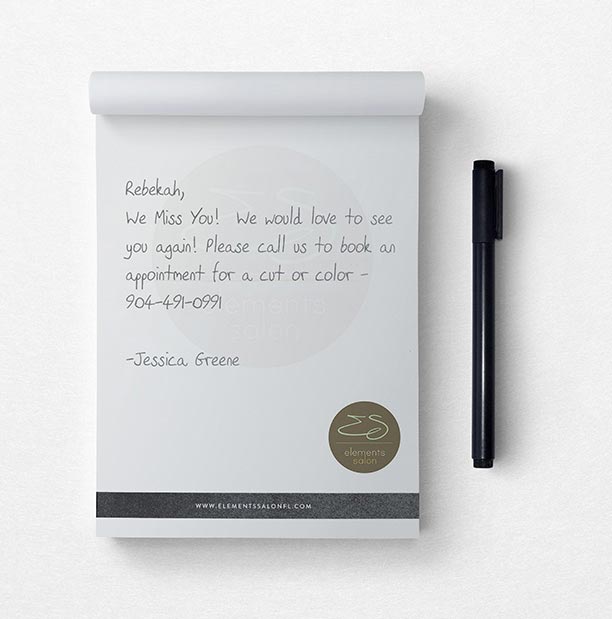 Rebekah,
We Miss You! We would love to see
you again! Please call us to book an
appointment for a cut or color -
904-491-0991
elements
salon
-Jessica Greene
ES
elements
salon
WWW.ELEMENTSSALONFL.COM